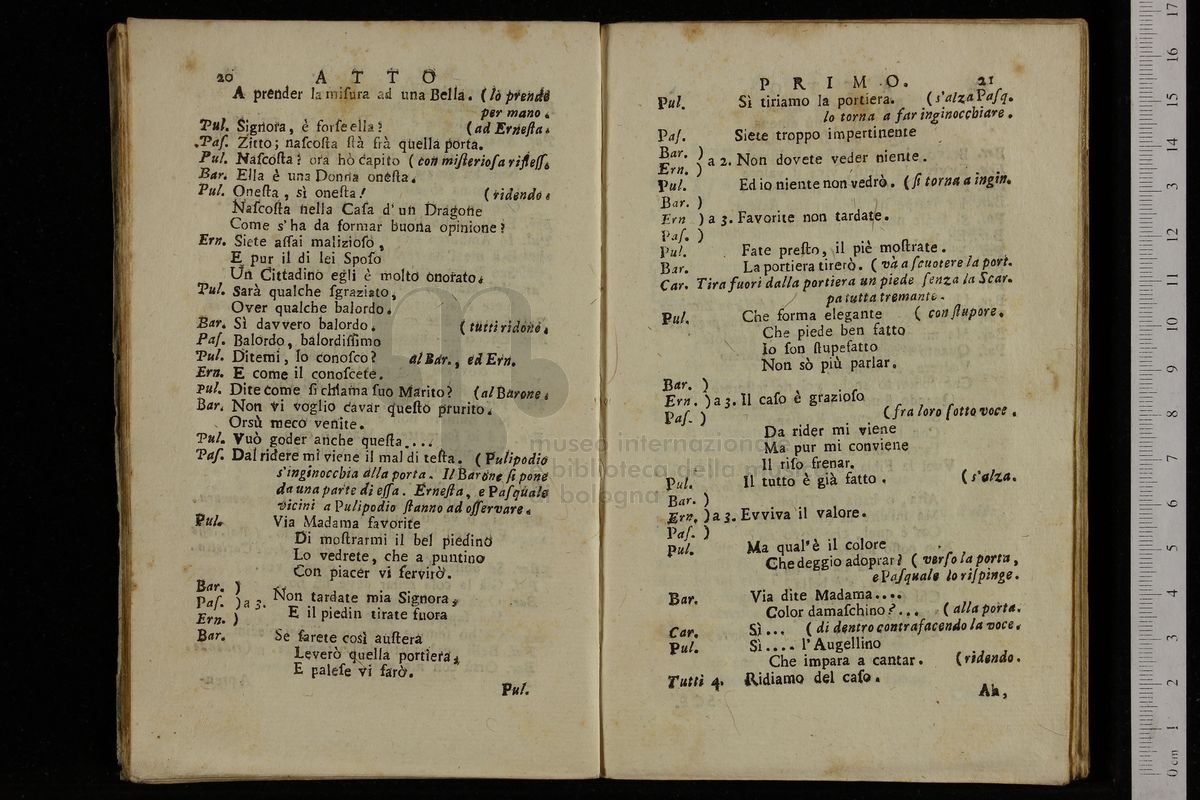 20 ATTO
A prender la misura ad una Bella. (lo prende
per mano.
Pul. Signora, è forse ella? (ad Ernesta.
Pas. Zitto; nascosta stà frà quella porta.
Pul. Nascosta? ora hò capito (con misteriosa rifless.
Bar. Ella è una Donna onesta.
Pul. Onesta, sì onesta! (ridendo.
Nascosta nella Casa d'un Dragone
Come s'ha da formar buona opinione?
Ern. Siete assai malizioso,
E pur il di lei Sposo
Un Cittadino egli è molto onorato.
Pul. Sarà qualche sgraziato,
Over qualche balordo.
Bar. Sì davvero balordo. (tutti ridono.
Pas. Balordo, balordissimo
Pul. Ditemi, lo conosco? al Bar., ed Ern.
Ern. E come il conoscete.
Pul. Dite come si chiama suo Marito? (al Barone.
Bar. Non vi voglio cavar questo prurito.
Orsù meco venite.
Pul. Vuò goder anche questa....
Pas. Dal ridere mi viene il mal di testa. (Pulipodio
s'inginocchia alla porta. Il Barone si pone
da una parte di essa. Ernesta, e Pasquale
vicini a Pulipodio stanno ad osservare.
Pul. Via Madama favorite
Di mostrarmi il bel piedino
Lo vedrete, che a puntino
Con piacer vi servirò.
Bar. )
Pas. ) a 3. Non tardate mia Signora,
Ern. ) E il piedin tirate fuora
Bar. Se farete così austera
Leverò quella portiera,
E palese vi farò.
Pul.
PRIMO. 21
Pul. Sì tiriamo la portiera. (s'alza Pasq.
lo torna a far inginocchiare.
Pas. Siete troppo impertinente
Bar. )
Ern. ) a 2. Non dovete veder niente.
Pul. Ed io niente non vedrò. (si torna a ingin.
Bar. )
Ern ) a 3. Favorite non tardate.
Pas. )
Pul. Fate presto, il piè mostrate.
Bar. La portiera tirerò. (và a scuotere la port.
Car. Tira fuori dalla portiera un piede senza la Scar.
pa tutta tremante.
Pul. Che forma elegante (con stupore.
Che piede ben fatto
Io son stupefatto
Non sò più parlar.
Bar. )
Ern. ) a 3. Il caso è grazioso
Pas. ) (fra loro sotto voce.
Da rider mi viene
Ma pur mi conviene
Il riso frenar.
Pul. Il tutto è già fatto. (s'alza.
Bar. )
Ern. ) a 3. Evviva il valore.
Pas. )
Pul. Ma qual'è il colore
Che deggio adoprar? (verso la porta,
e Pasquale lo rispinge.
Bar. Via dite Madama....
Color damaschino?... (alla porta.
Car. Sì... (di dentro contrafacendo la voce.
Pul. Sì.... l'Augellino
Che impara a cantar. (ridendo.
Tutti 4. Ridiamo del caso.
Ah,
museo internazionale
e biblioteca della musica
bologna